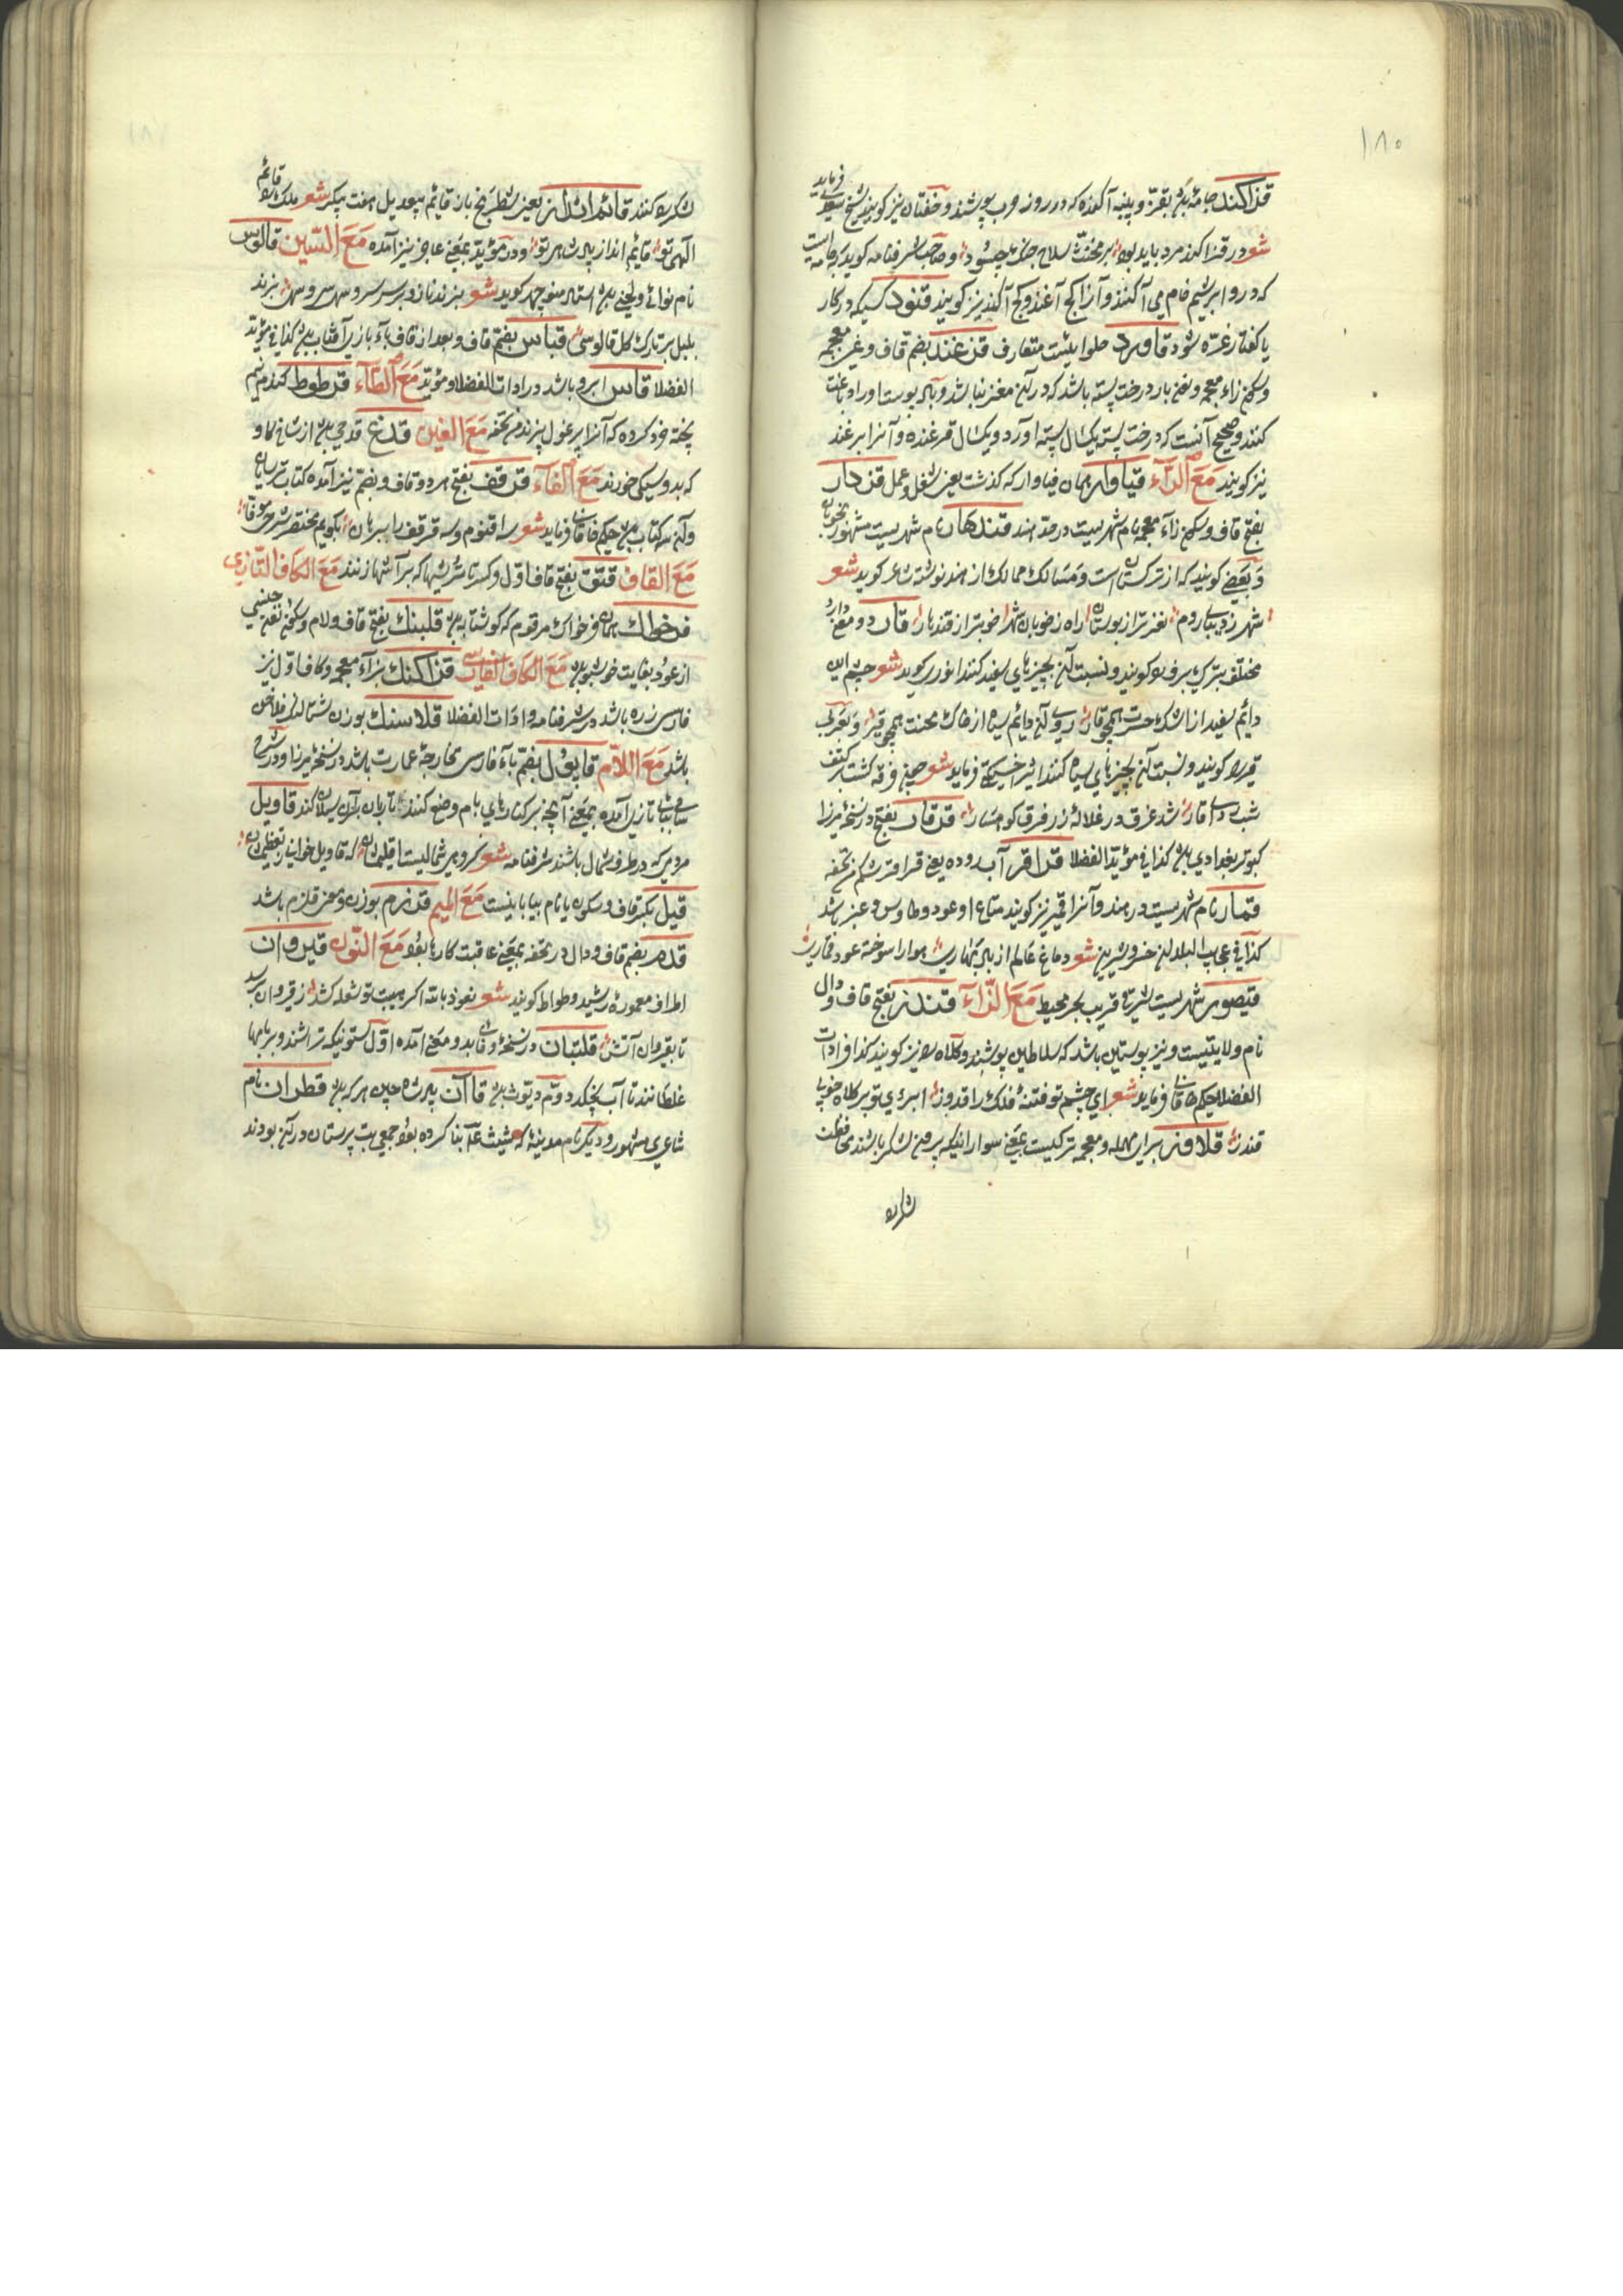 ۱۸۰
قزاکند جامهٔ بقز و پنبه آکنده که در روز حرب پوشند و خفتان نیز گویند شیخ سعدی فرماید
شعر در قزاکند مرد باید بود بر مخنث سلاح جنگ چه سود و صاحب شرفنامه گوید که جامه است
که درو ابریشم خام می آکنند و آنرا کج آغند و کج آکند نیز گویند قنود کسیکه در کار
یا گفتار غره شود قاورد حلوائیست متعارف قزغند بضم قاف و غین معجمه
وسکون زاء معجمه ونون بار درخت پسته باشد که در آن مغز نباشد و بآن پوست را دباغت
کنند وصحیح آنست که درخت پسته یکسال پسته آورد و یکسال قزغنده و آنرا بزغند
نیز گویند مَعَ الرّآء قیاوار همان فیاوار که گذشت یعنی شغل و عمل قزدار
بفتح قاف وسکون زآء معجمه نام شهریست در حد هند قندهار نام شهریست مشهور بخوبان
وَبَعضی گویند که از ترکستان است وَمَسالک ممالک از هند نوشته شاعر گوید شعر
شهر زدیبا روم نغزتر از بوستان راه ز خوبان شهر خوبتر از قندهار قار دو معنی دارد
مختلف بترکی برف را گویند و نسبت آن بچیزهای سفید کنند انوری گوید شعر چشم این
دایم سفید از اشک حسرت همچو قار روی آن دائم سیاه از خاک محنت همچو قیر وبعربی
قیر را گویند و نسبت آن بچیزهای سیاه کنند اثیر اخسیکتی فرماید شعر
شب را قار شد غرق در غلالهٔ زر فرق کوهسار قرقار بفتح در نسخهٔ میرزا
کبوتر بغدادی بود کذا فی مؤید الفضلا قراقر آب روده یعنی قراقر شکم من تحفه
قمار نام شهریست در هند وآنرا قمیر نیز گویند متاع او عود وطاوس وعنبر باشد
کذا فی عجایب البلدان خسرو شیرین شعر دماغ عالم از باد بهاری هوا را سوخته عود قماری
قیصور شهریست شرقی قریب بحر محیط مَعَ الزّآء قندز بفتح قاف و دال
نام ولایتیست ونیز پوستین باشد که سلاطین پوشند وکلاه را نیز گویند کذا فی ادات
الفضلا حکیم خاقانی فرماید شعر ای چشم تو فتنهٔ فلک را قدوز ابروی تو بر کلاه خوبی
قندز قلاوز برای مهمله ومعجمه ترکیست بمعنی سوارانیکه بیرون لشکر باشند محافظت
لشکر
۱۸۱
لشکر کنند قائم انداز یعنی شطرنج باز قایم بیعدیل هفت پیکر شعر ملک را قایم
آلهی تو قائم انداز پادشاهی تو ودر مؤید بمعنی عاجز نیز آمده مَعَ السّین قالوس
نام نوائی ولحنی بود استاد منوچهر گوید شعر بزند نارو بر سر سرو سهی سرو سهی زند
بلبل بر تارک گل قالوسی قباس بضم قاف وبعد از قاف بآء تازی آفتاب بود کذا فی مؤید
الفضلا قاس ابرو باشد در ادات الفضلا ومؤید مَعَ الطّاء قرطوط گندم نیم
پخته خرد کرده که آنرا برغول پزند من تحفه مَعَ الغین قدغ قدحی بود از شاخ گاو
که بدو سیکی خورند مَعَ الفآء قرقف بفتح هر دو قاف وبضم نیز آمده کتاب ترسایان
وآن سه کتاب بود حکیم خاقانی فرماید شعر سه اقنوم وسه قرقف را ببرهان بگویم مختصر شرح موفا
مَعَ القاف قتق بفتح قاف اول وکسر تاء ترشیها که بر آشها زنند مَعَ الکاف التازی
قرخواک همان فرخواک مرقوم که گوشتابه بود قلبنک بفتح قاف ولام وسکون نون جنسی
از عود بغایت خوشبو بود مَعَ الکاف الفارسی قزاکنک بزآء معجمه وکاف اول نیز
فارسی زره باشد در شرفنامه وادات الفضلا قلاسنک بوزن شتالنک فلاخن
باشد مَعَ اللّام قابول بضم بآء فارسی مخارجهٔ عمارت باشد در نسخهٔ میرزا ودر شرح
سامی بباء تازی آمده بمعنی آنچه بر کنارهای بام وضع کنند تا باران بآن سیلان کند قاویل
مردمی که در طرف شمال باشند شرفنامه شعر گروهی شمالیست اقلیمشان که قاویل خوانی بتعظیمشان
قیل بکسر قاف وسکون یا نام بیابانیست مَعَ المیم قرزم بوزن ومعنی قلزم باشد
قدم بضم قاف ودال در تحفه بمعنی عاقبت کارها بود مَعَ النّون قیروان
اطراف معموره رشید وطواط گویند شعر نعوذ بالله اگر هیبت تو شعله کشد ز قیروان برسد
تا بقیروان آتش قلتبان در نسخهٔ وفائی بدو معنی آمده اول ستونیکه تراشند وبر بامها
غلطانند تا آب نچکد دوّم دیّوث بود قاآن پادشاه چین هر که بود قطران نام
شاعری مشهور ودیگر نام مدینهٔ که شیث عم بنا کرده بود جمعی بت پرستان در آن بودند